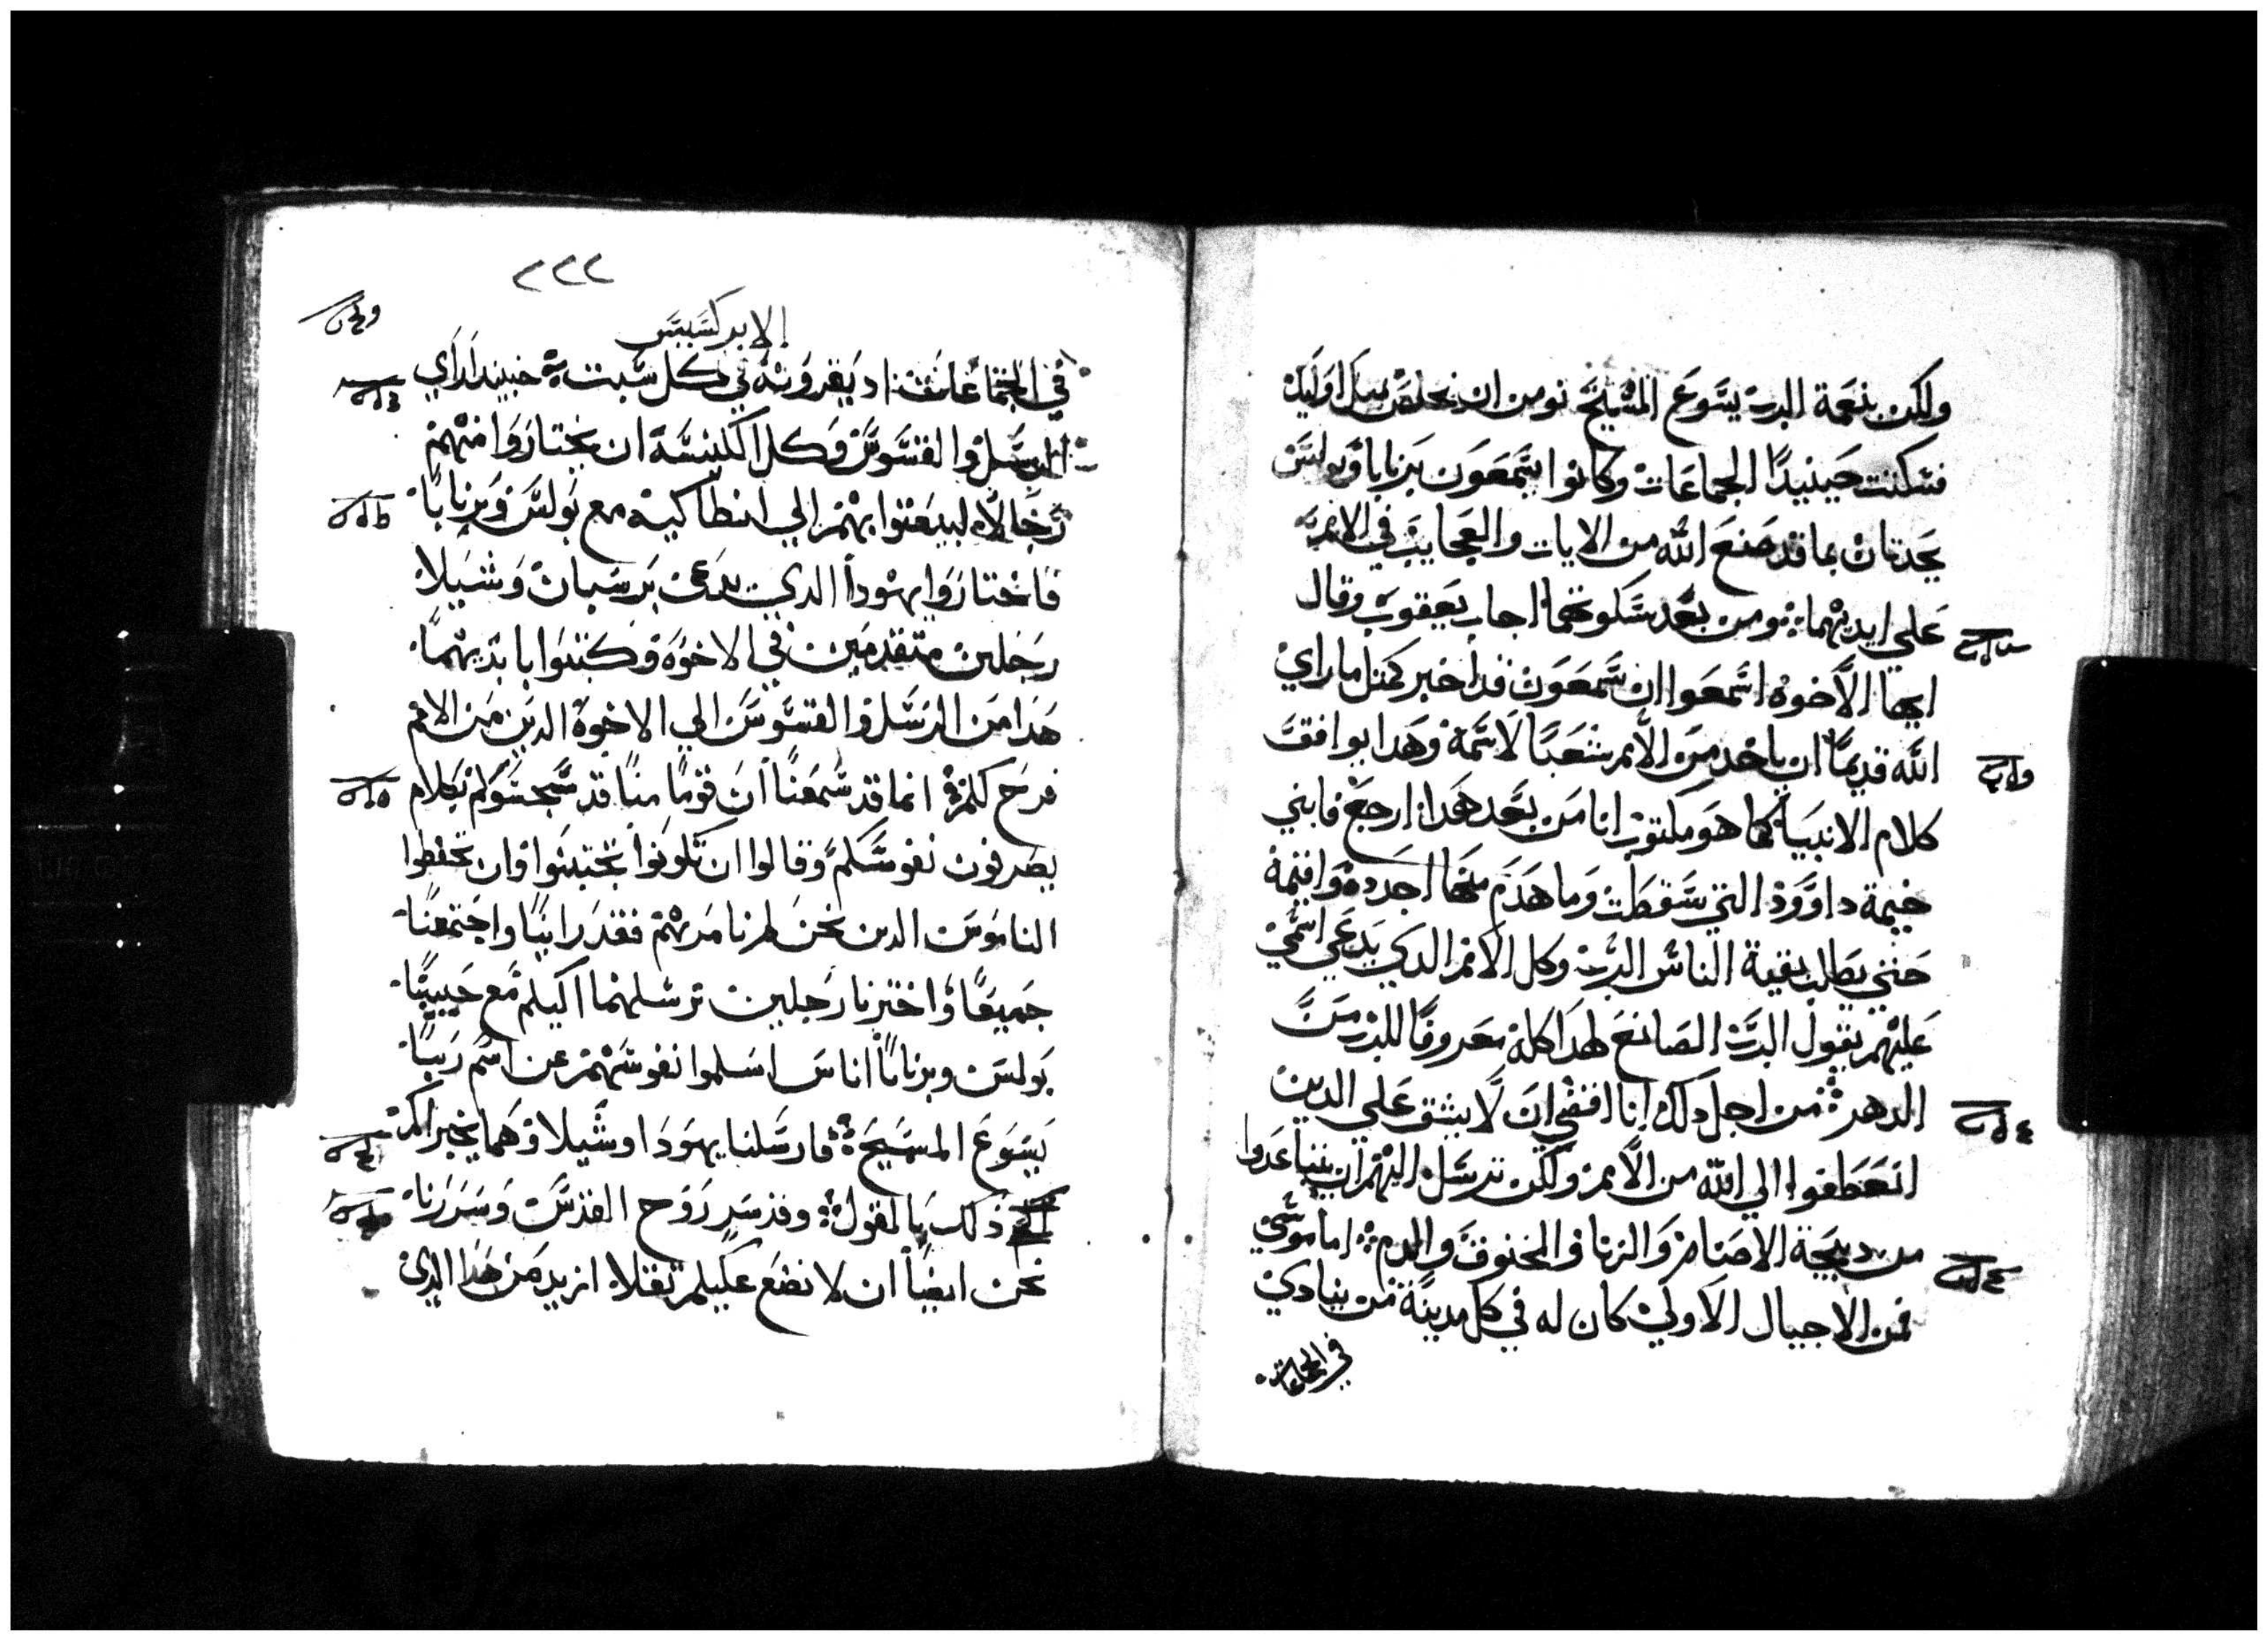 ولكن بنعمة الرب يسوع المسيح نومن ان نخلص مثل اوليك
فسكنت حينيدًا الجماعات وكانوا يسمعون برنابا وبولس
يحدتان بما قد صنع الله من الايات والعجايب في الامم
علي ايديهما ومن بعد سكوتهما اجاب يعقوب وقال
ايها الاخوه اسمعوا ان سمعون قد اخبر كمتل ما راي
الله قديمًا ان ياخد من الامم شعبًا لاسمه وهدا يوافق
كلام الانبيا كما هو مكتوب انا من بعد هدا ارجع فابني
خيمة داوود التي سقطت وما هدم منها اجدده واقيمه
حتي يطلب بقية الناس الرب وكل الامم الدي يدعي اسمي
عليهم يقول الرب الصانع لهدا كله معروفًا للرب من
الدهر من اجل دلك انا اقضي ان لا يثقل علي الدين
انعطفوا الي الله من الامم ولكن نرسل اليهم ان يتباعدوا
من دبيحة الاصنام والزنا والمخنوق والدم اما موسي
فمن الاجيال الاولي كان له في كل مدينة من ينادي
في الجماعات
٢٢٢
الابركسيس
في الجماعات اد يقرونه في كل سبت حينيد راي
الرسل والقسوس وكل الكنيسة ان يختاروا منهم
رجالاً ليبعتوا بهم الي انطاكيه مع بولس وبرنابا
فاختاروا يهودا الدي يدعي برسبان وشيلا
رجلين متقدمين في الاخوة وكتبوا بايديهما
هدا من الرسل والقسوس الي الاخوة الدين من الامم
فرح لكم انما قد سمعنا ان قومًا منا قد سجسوكم بكلام
يصرفون نفوسكم وقالوا ان تكونوا تختتنوا وان تحفظوا
الناموس الدين نحن لم نامرهم فقد راينا واجتمعنا
جميعًا واخترنا رجلين نرسلهما اليكم مع حبيبينا
بولس وبرنابا اناس اسلموا نفوسهم عن اسم ربنا
يسوع المسيح فارسلنا يهودا وشيلا وهما يخبراكم
ذلك بالقول وقد سر روح القدس وسررنا
نحن ايضًا ان لا نضع عليكم ثقلا ازيد من هدا الدي